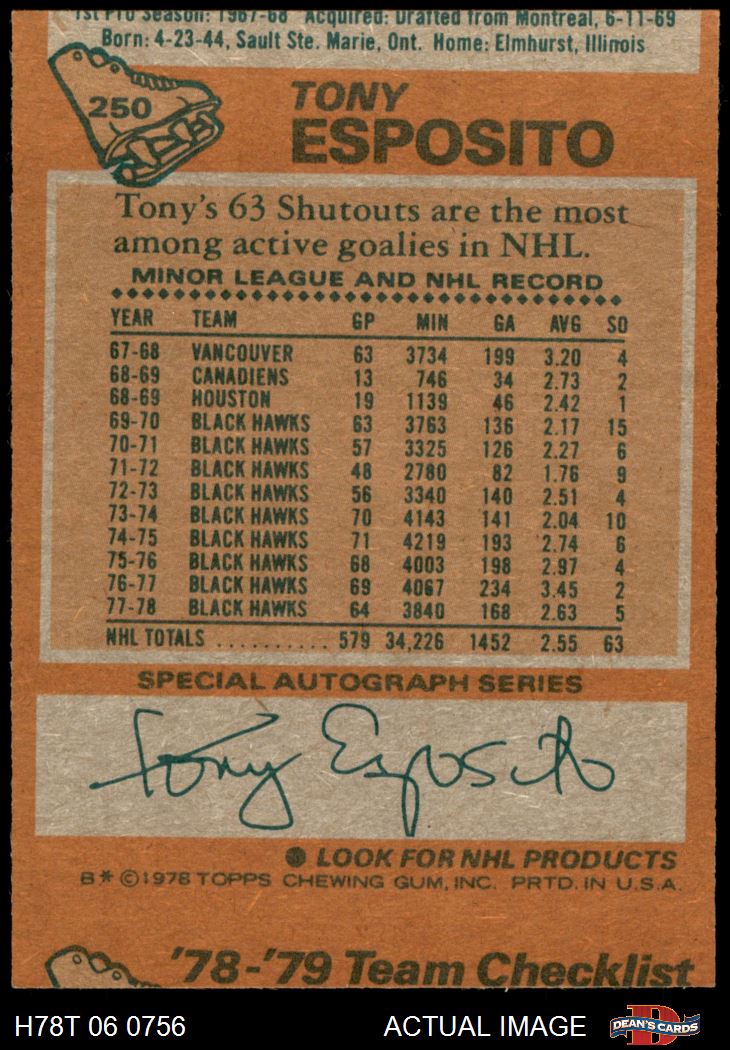 1st Pro Season: 1967-68 Acquired: Drafted from Montreal, 6-11-69
Born: 4-23-44, Sault Ste. Marie, Ont. Home: Elmhurst, Illinois
250
TONY
ESPOSITO
Tony's 63 Shutouts are the most
among active goalies in NHL.
MINOR LEAGUE AND NHL RECORD
YEAR TEAM GP MIN GA AVG SO
67-68 VANCOUVER 63 3734 199 3.20 4
68-69 CANADIENS 13 746 34 2.73 2
68-69 HOUSTON 19 1139 46 2.42 1
69-70 BLACK HAWKS 63 3763 136 2.17 15
70-71 BLACK HAWKS 57 3325 126 2.27 6
71-72 BLACK HAWKS 48 2780 82 1.76 9
72-73 BLACK HAWKS 56 3340 140 2.51 4
73-74 BLACK HAWKS 70 4143 141 2.04 10
74-75 BLACK HAWKS 71 4219 193 2.74 6
75-76 BLACK HAWKS 68 4003 198 2.97 4
76-77 BLACK HAWKS 69 4067 234 3.45 2
77-78 BLACK HAWKS 64 3840 168 2.63 5
NHL TOTALS .......... 579 34,226 1452 2.55 63
SPECIAL AUTOGRAPH SERIES
Tony Esposito
● LOOK FOR NHL PRODUCTS
B*©1978 TOPPS CHEWING GUM, INC. PRTD. IN U.S.A.
'78-'79 Team Checklist
H78T 06 0756 ACTUAL IMAGE D DEAN'S CARDS